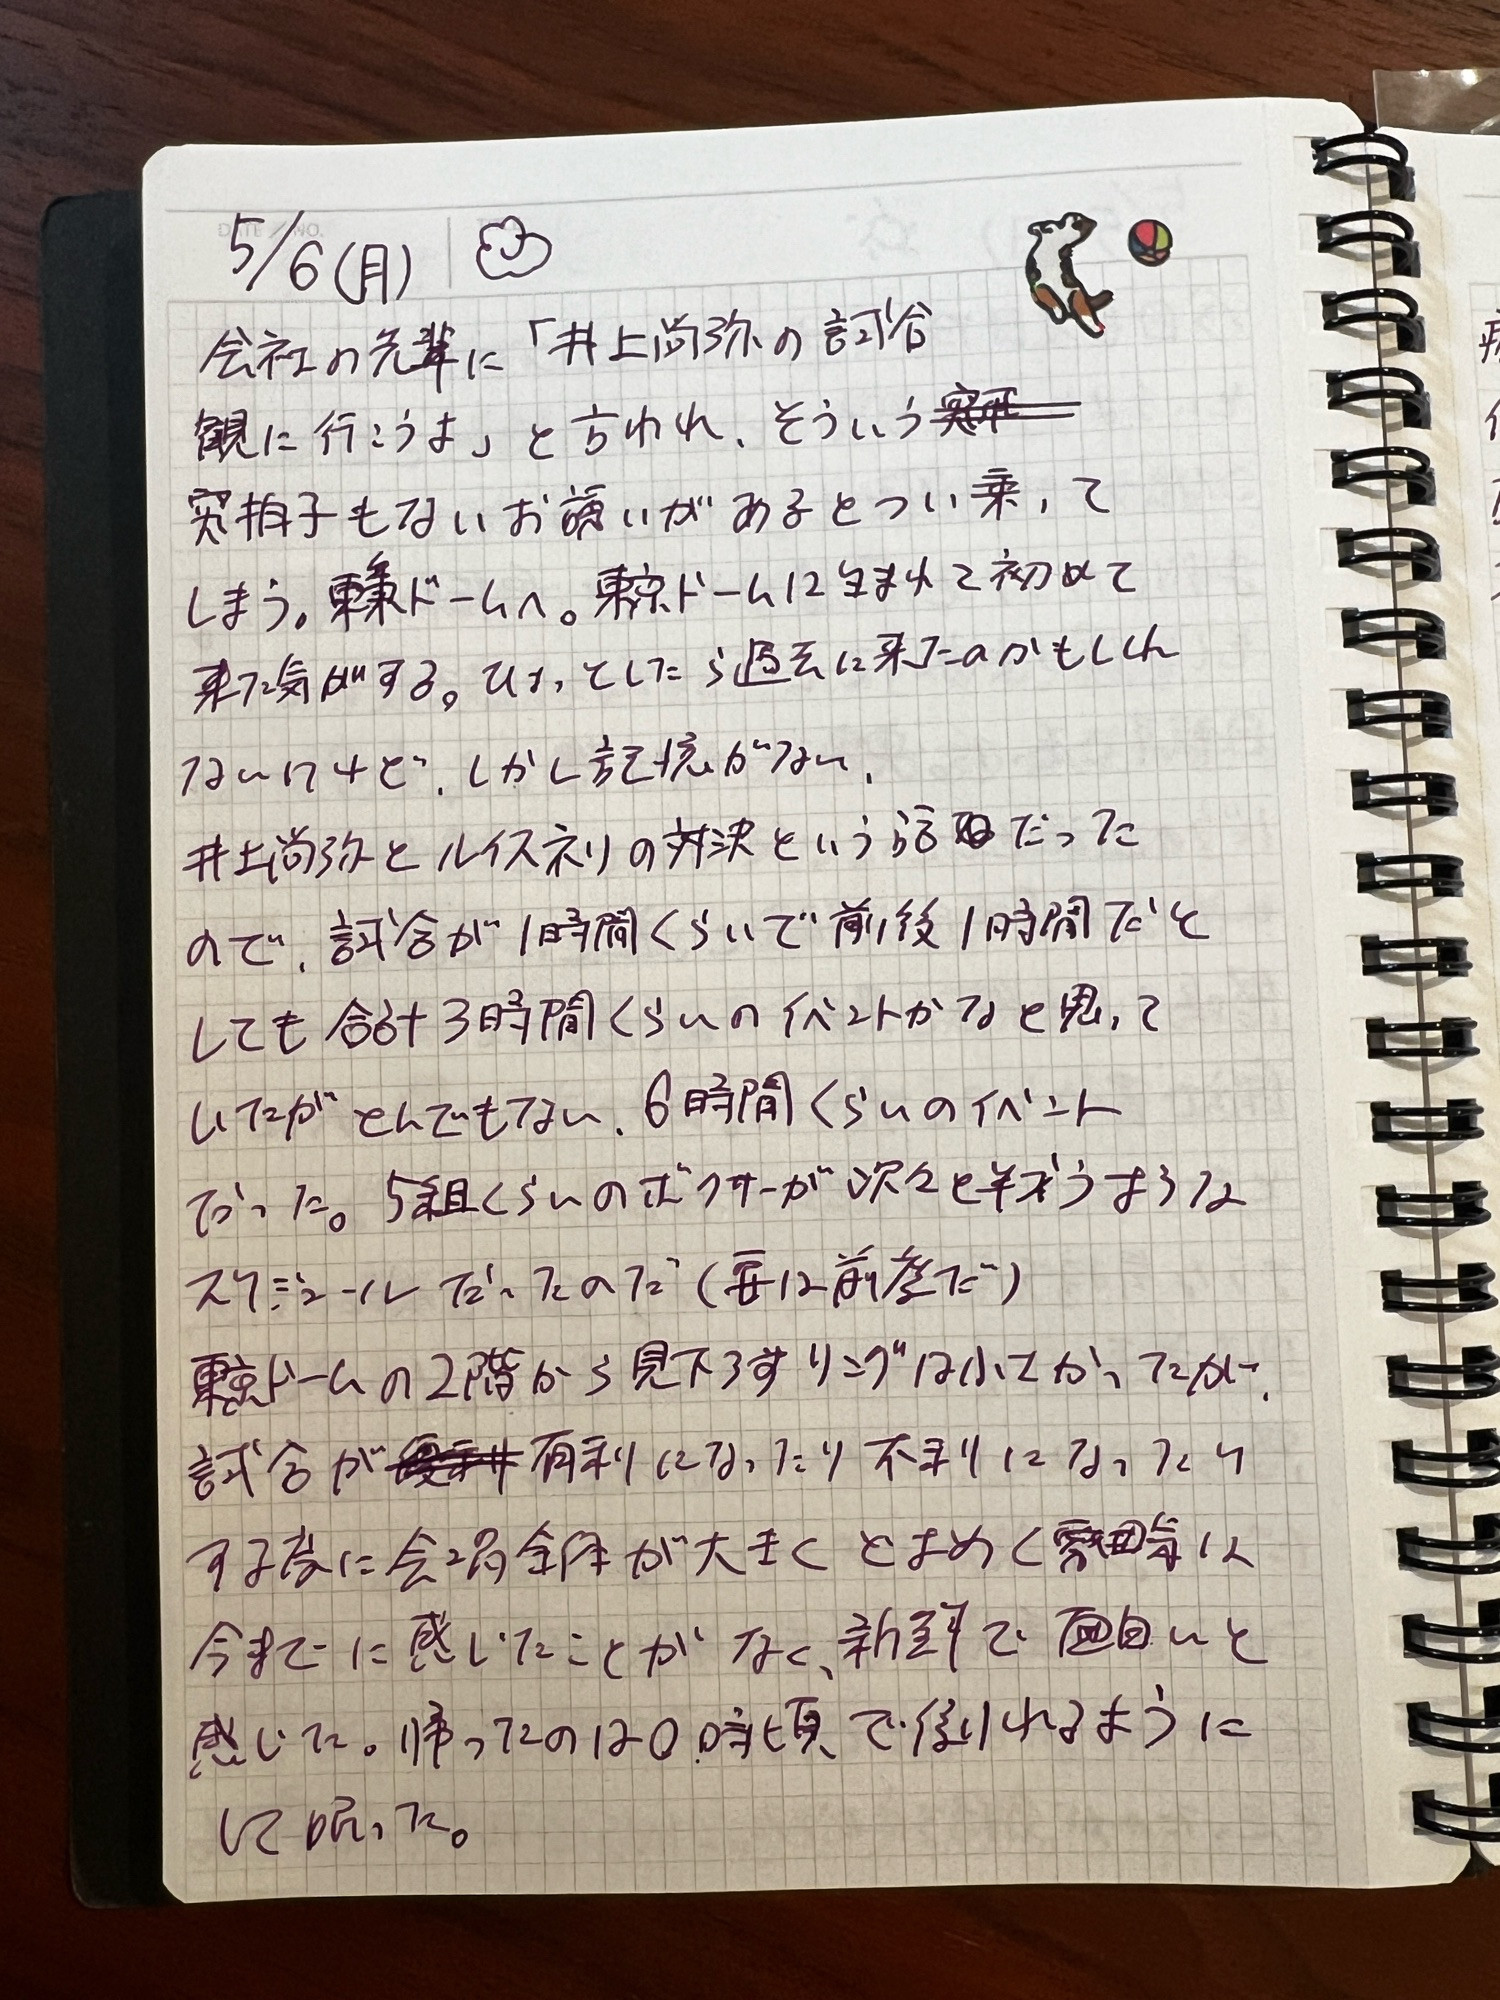 5/6(月)
会社の先輩に「井上尚弥の試合
観に行こうよ」と言われ、そういう
突拍子もないお願いがあるとつい乗って
しまう。東京ドームへ。東京ドームに生まれて初めて
来た気がする。ひょっとしたら過去に来たのかもしれ
ないけど、しかし記憶がない、
井上尚弥とルイスネリの対決という話だった
ので、試合が1時間くらいで前後1時間だと
しても合計3時間くらいのイベントかなと思って
いたがとんでもない、6時間くらいのイベント
だった。5組くらいのボクサーが次々と
スケジュールだったのだ(要は前座だ)
東京ドームの2階から見下ろすリングは小さかったが、
試合が有利になったり不利になったり
する度に会場全体が大きくどよめく雰囲気は
今までに感じたことがなく、新鮮で面白いと
感じた。帰ったのは0時頃で倒れるように
して眠った。